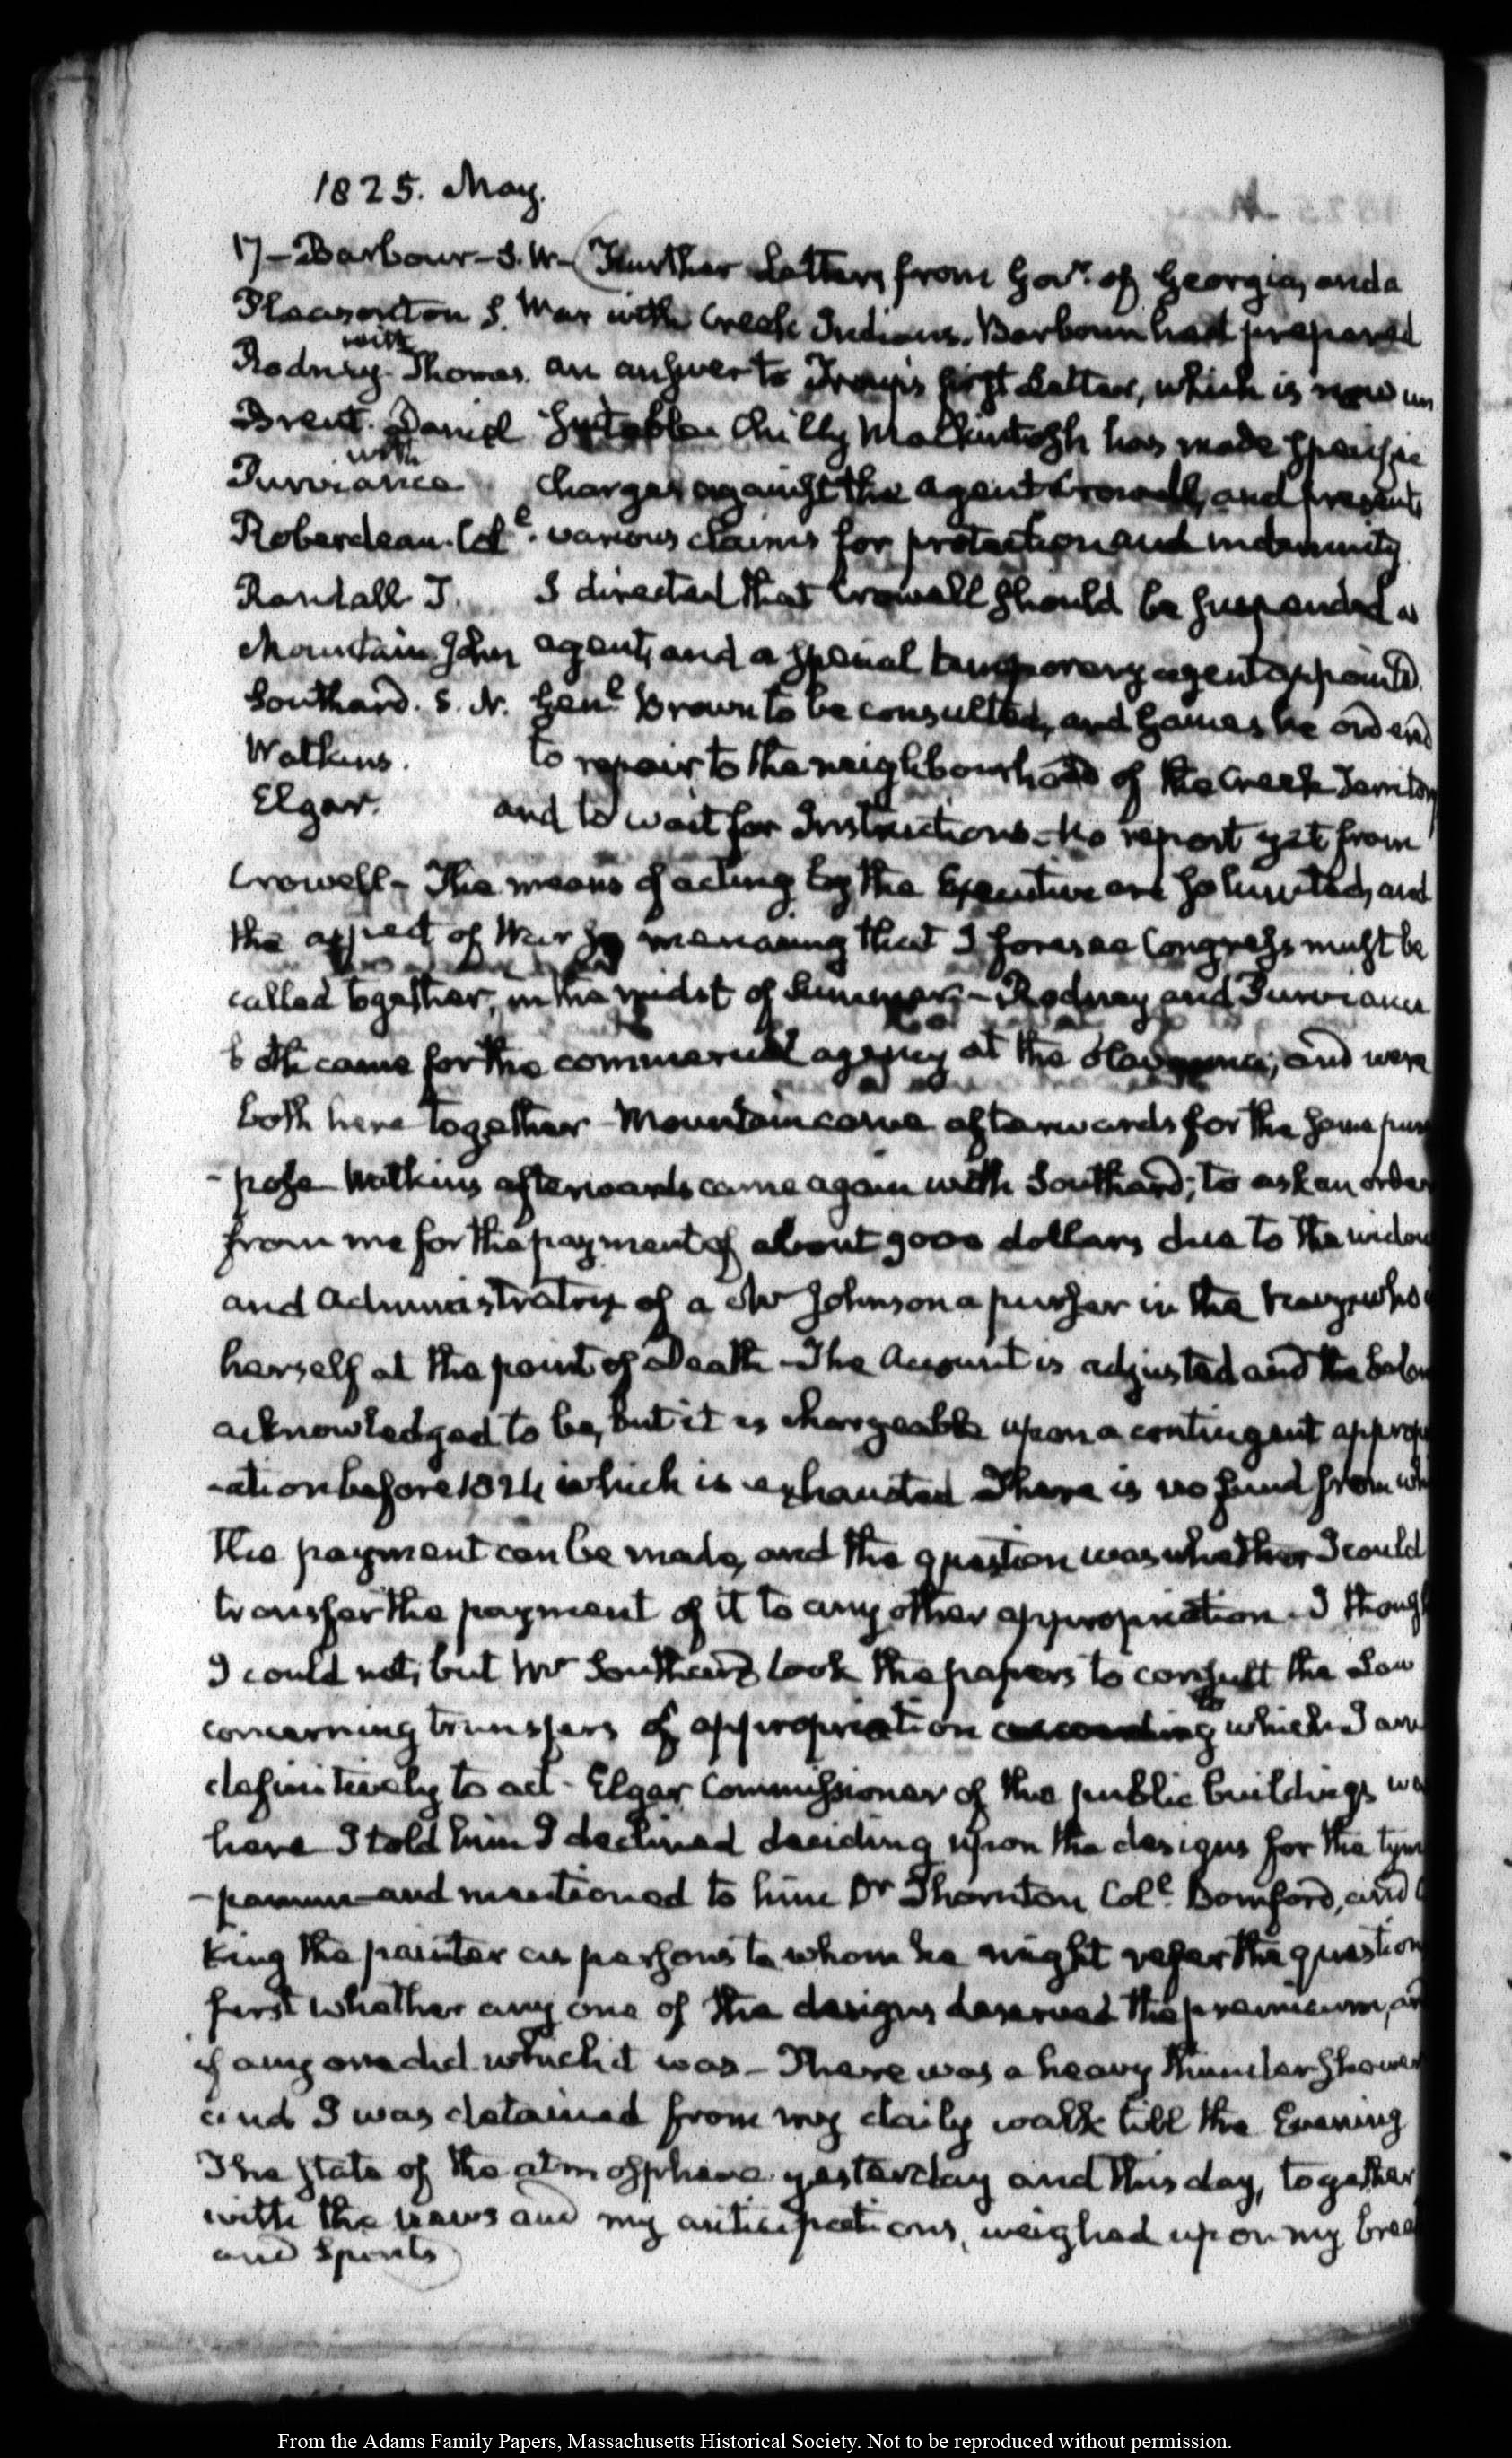 1825. May.
17 - Barbour - S. W - (Further Letters from Govr. of Georgia, and a
Pleasonton S. War with Creek Indians. Barbour had prepared
with
Rodney. Thomas. an answer to Troup's first Letter, which is now un
Brent. Daniel suitable Chilly McIntosh has made specific
with
Purviance charges against the agent Crowell, and presents
Roberdeau. Col. various claims for protection and indemnity
Randall J. I directed that Crowell should be suspended as
Mountain. John agent, and a special temporary agent appointed.
Southard. S. N. Genl. Brown to be consulted, and Gaines be ordered
Watkins. to repair to the neighbourhood of the Creek Territory
Elgar. and to wait for Instructions - No report yet from
Crowell - The means of acting by the Executive are so limited, and
the aspect of War so menacing that I foresee Congress must be
called together, in the midst of Summer, - Rodney and Purviance
both came for the commercial agency at the Havanna; and were
both here together - Mountain came afterwards for the same pur
-pose Watkins afterwards came again with Southard; to ask an order
from me for the payment of about 9000 dollars due to the widow
and administratrix of a Mr Johnson a purser in the Navy, who
herself at the point of Death - The Account is adjusted and the balan
acknowledged to be, but it is chargeable upon a contingent appropri
-ation before 1824 which is exhausted There is no fund from wh
the payment can be made, and the question was whether I could
transfer the payment of it to any other appropriation. I though
I could not, but Mr Southard took the papers to consult the Law
concerning transfers of appropriation which I am
definitively to act - Elgar Commissioner of the public buildings wa
here I told him I declined deciding upon the designs for the tym
-panum and mentioned to him Dr Thornton Coll. Bomford, and
King the painter as persons to whom he might refer the question
first whether any one of the designs deserved the premium, an
if any one did which it was - There was a heavy thunder shower
and I was detained from my daily walk till the Evening
The state of the atmosphere yesterday and this day, together
with the news and my anticipations, weighed upon my brea
and Spirits)
From the Adams Family Papers, Massachusetts Historical Society. Not to be reproduced without permission.